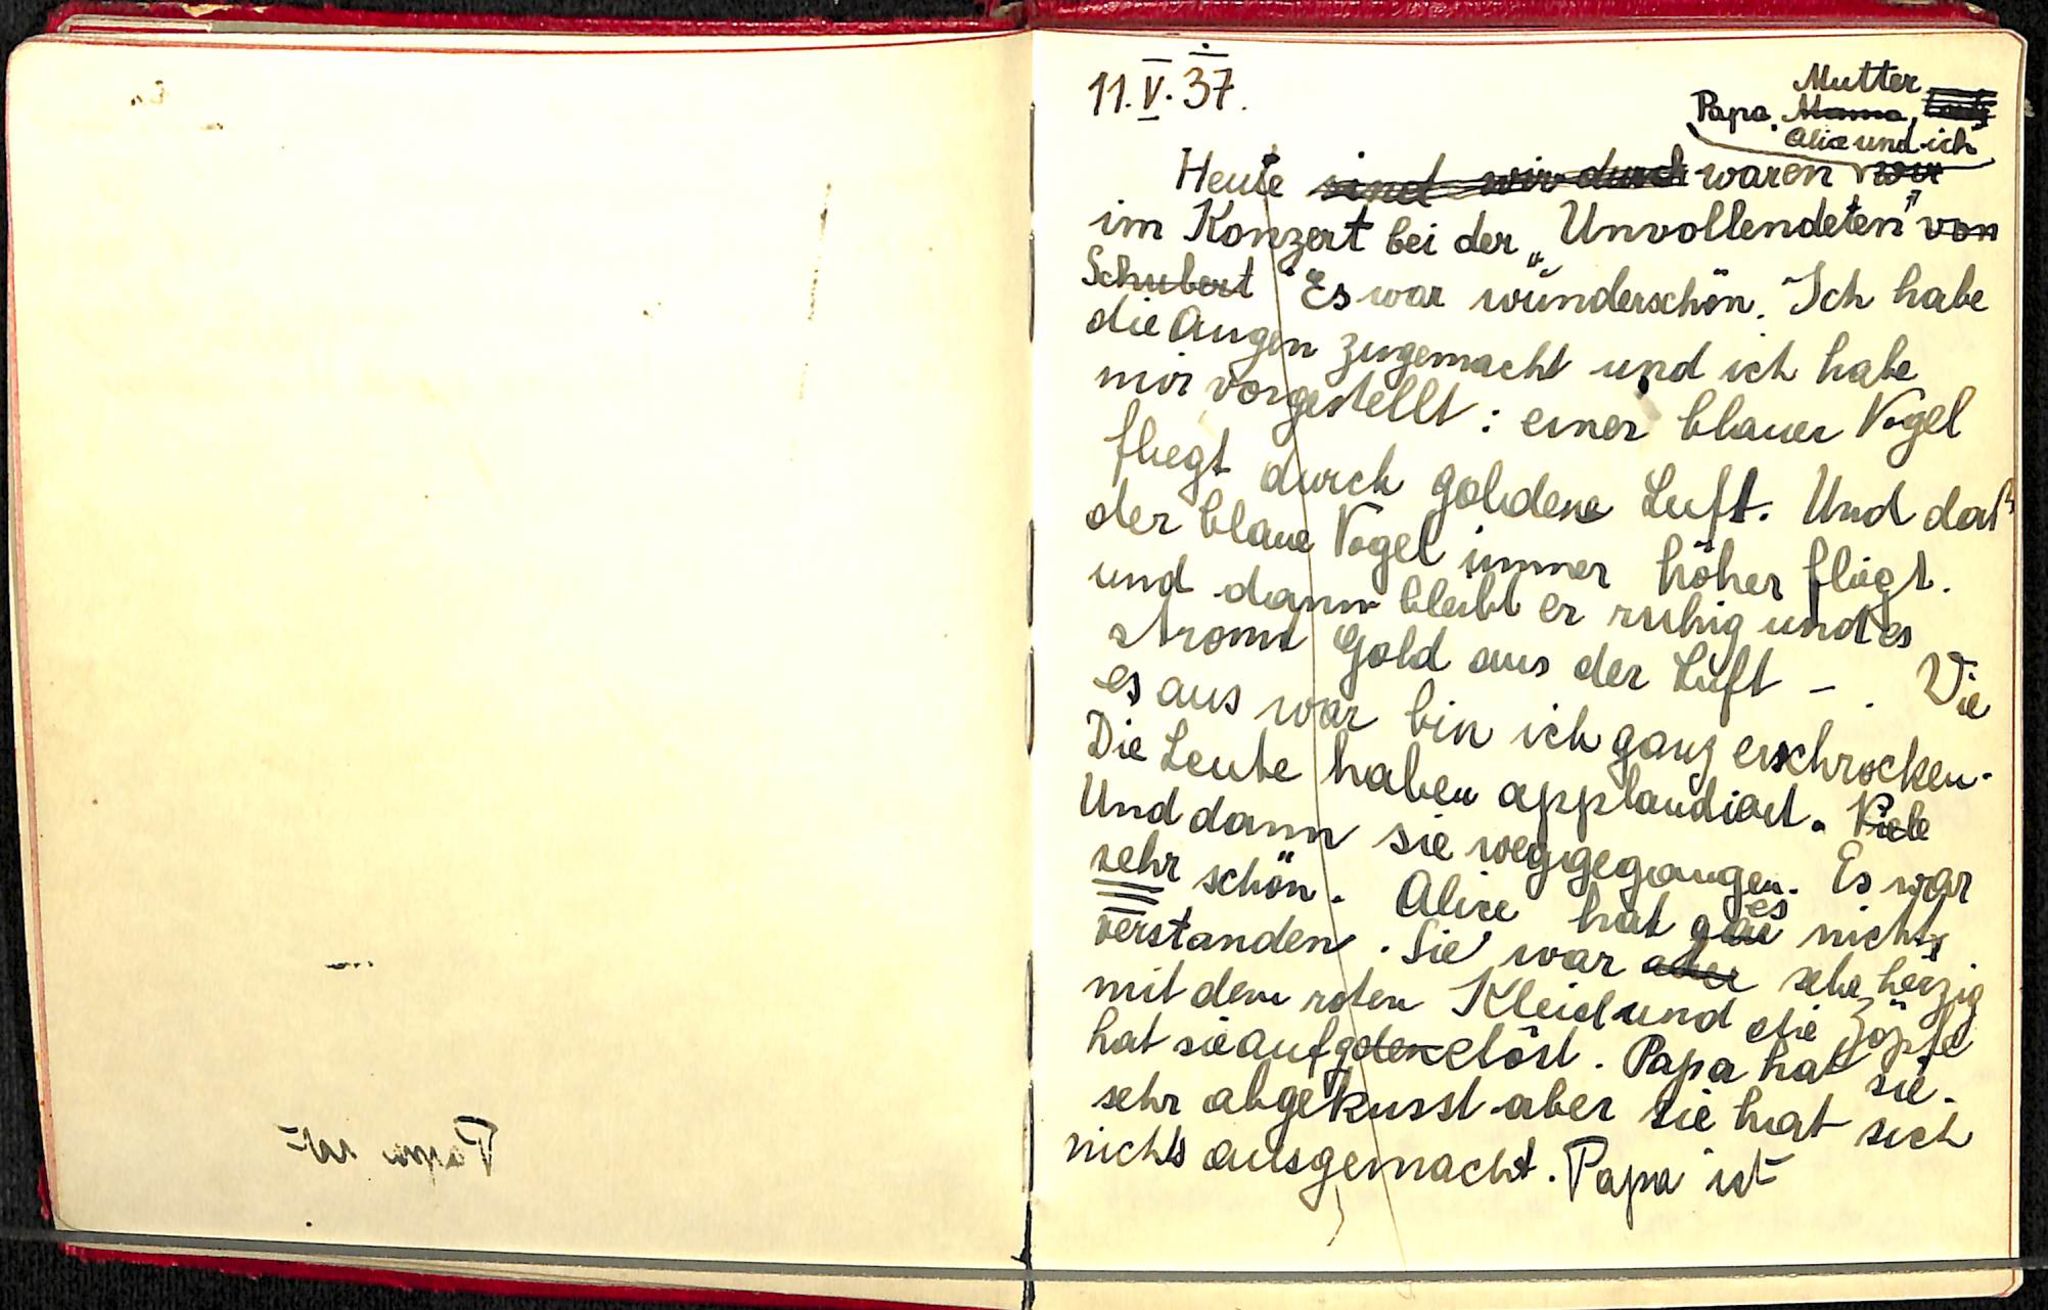 11. V. 37.
Mutter
Papa, Mama,
Alice und ich
Heute sind wir durch waren wir
im Konzert bei der „Unvollendeten" von
Schubert Es war wunderschön. Ich habe
die Augen zugemacht und ich habe
mir vorgestellt: einer blauer Vogel
fliegt durch goldene Luft. Und daß
der blaue Vogel immer höher fliegt.
und dann bleibt er ruhig und es
stromt Gold aus der Luft – . Wie
es aus war bin ich ganz erschrocken.
Die Leute haben applaudiert. Viele
Und dann sie weggegangen. Es war
sehr schön. Alice hat es nichts
verstanden. Sie war aber sehr herzig
mit dem roten Kleid und die Zöpfe
hat sie aufgelöst. Papa hat sie
sehr abgekusst aber sie hat sich
nichts ausgemacht. Papa ist